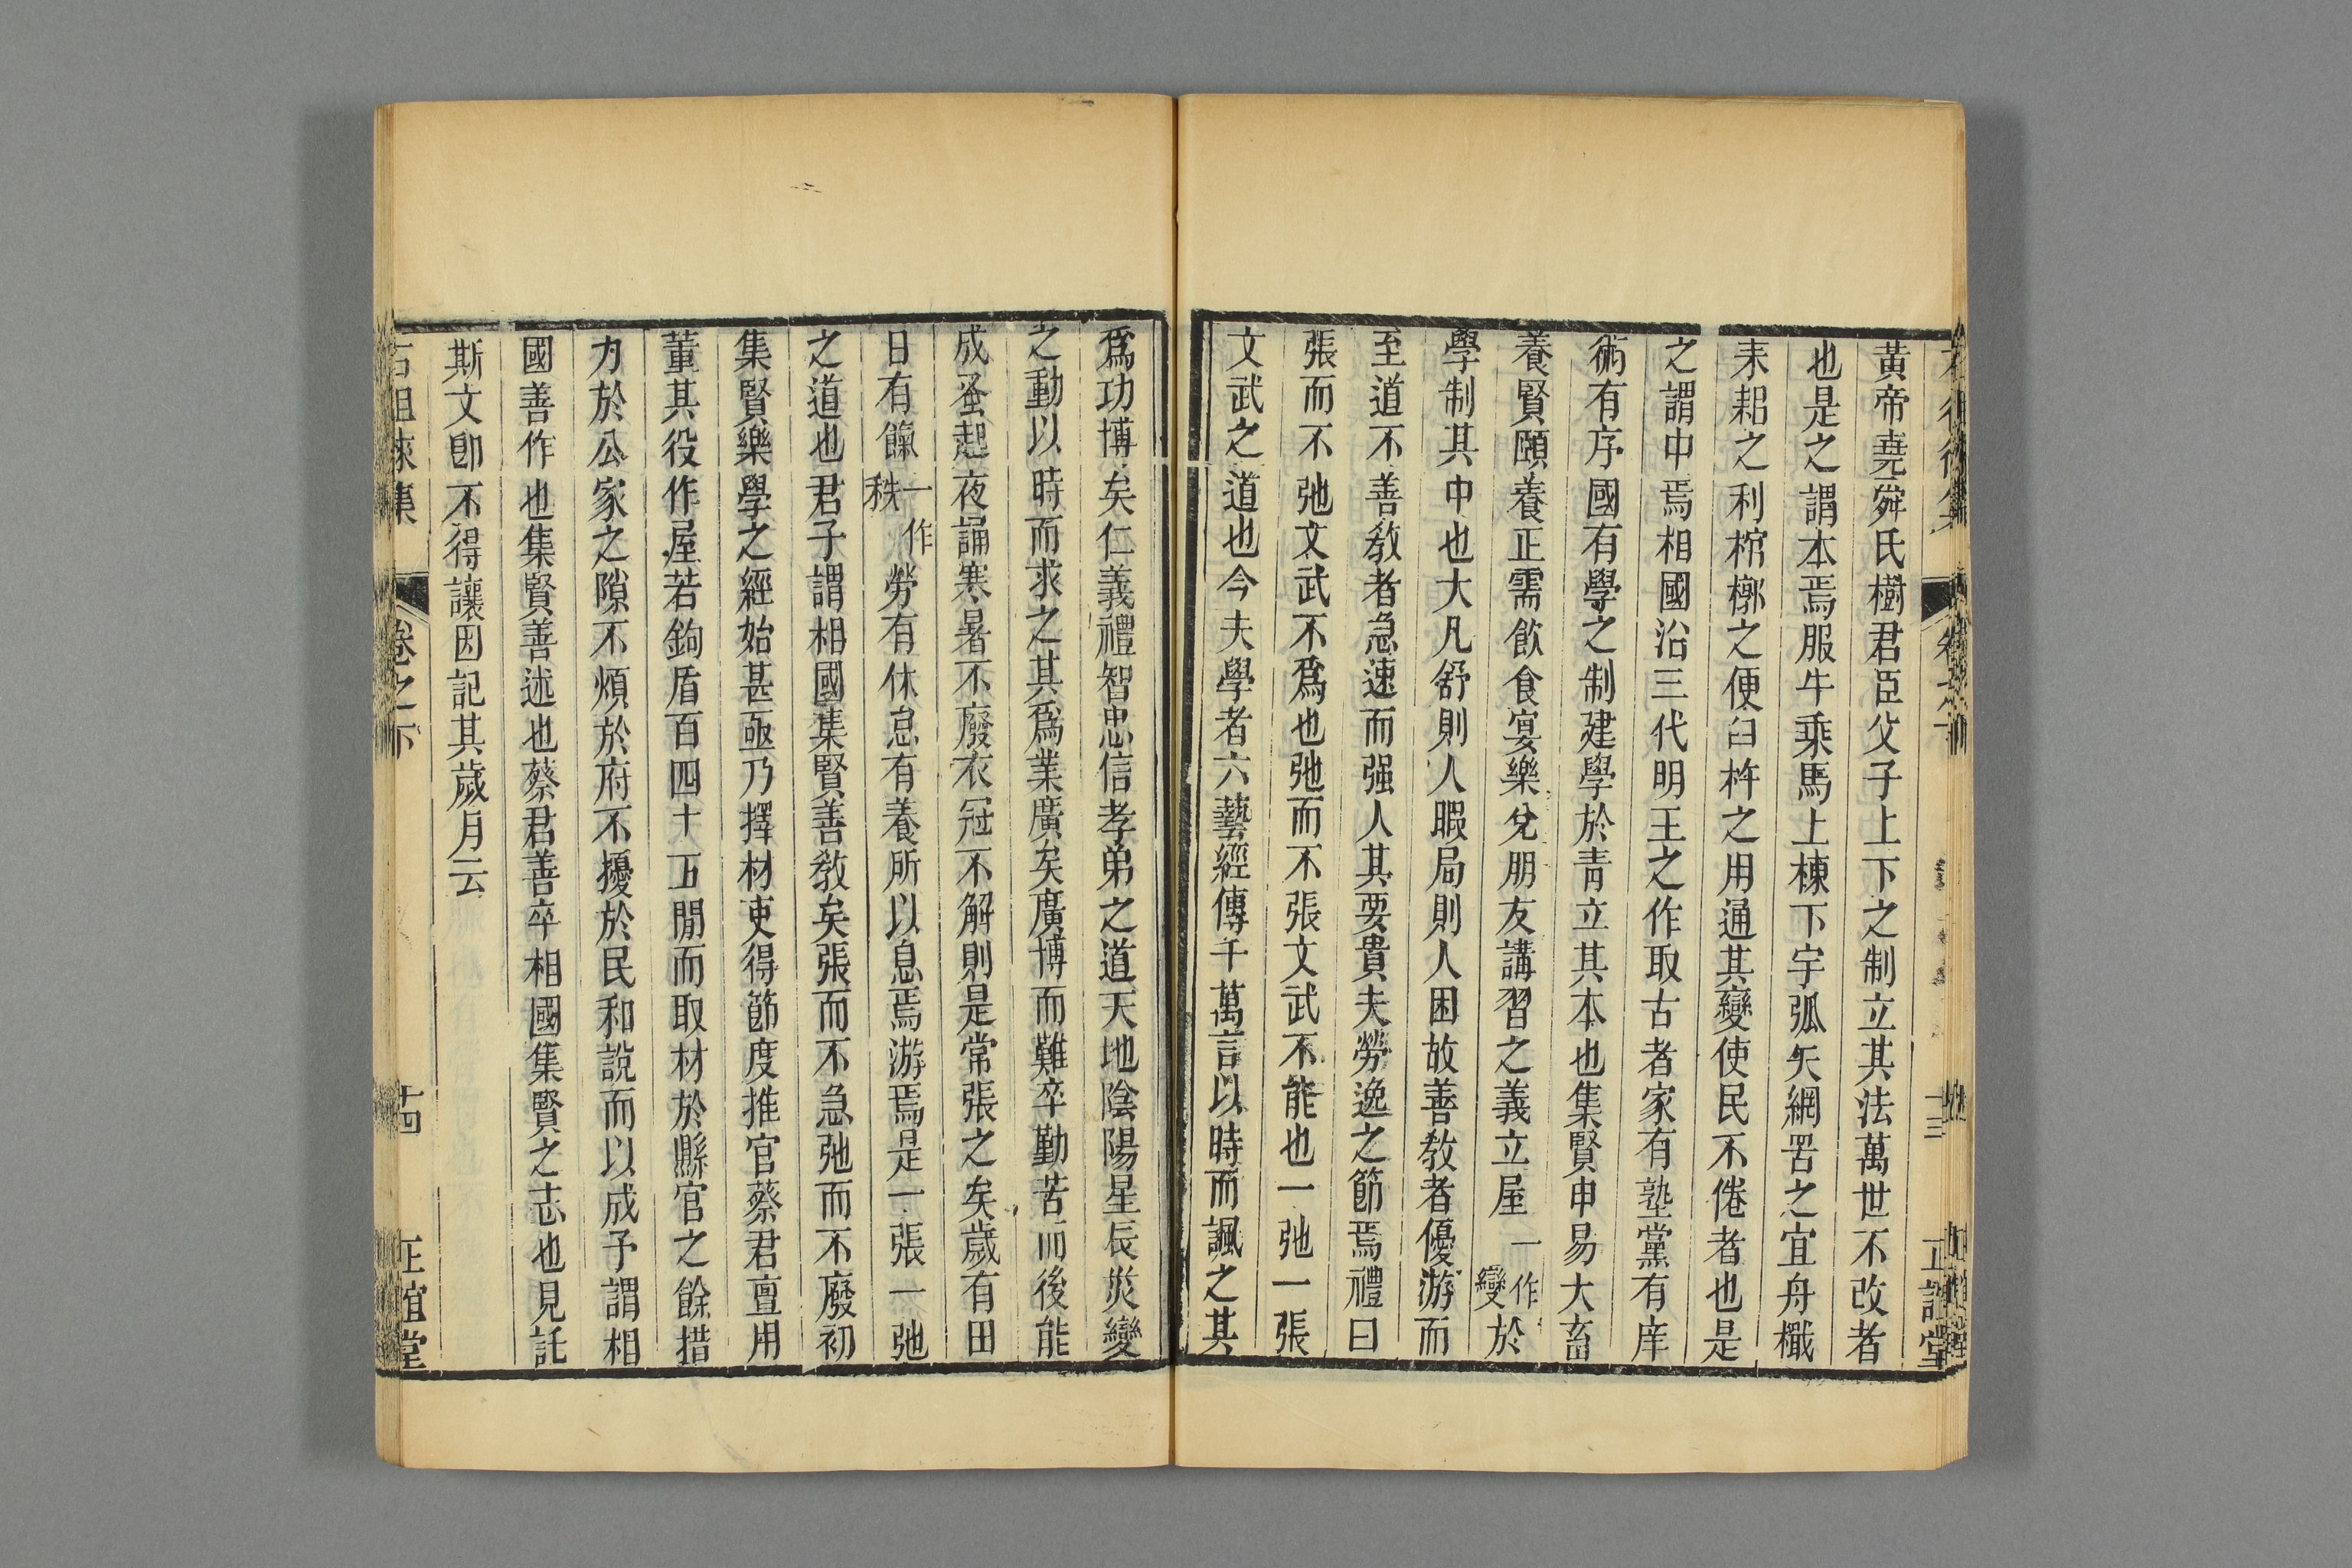 黄帝堯舜氏樹君臣父子上下之制立其法萬世不改者
也是之謂本焉服牛乘馬上棟下宇弧矢網罟之宜舟檝
耒耜之利棺槨之便臼杵之用通其變使民不倦者也是
之謂中焉相國沿三代明王之作取古者家有塾黨有庠
術有序國有學之制建學於青立其本也集賢申易大畜
養賢頤養正需飲食宴樂兌朋友講習之義立屋一作變於
學制其中也大凡舒則人暇局則人困故善敎者優游而
至道不善敎者急速而强人其要貴夫勞逸之節焉禮曰
張而不弛文武不爲也弛而不張文武不能也一弛一張
文武之道也今夫學者六藝經傳千萬言以時而諷之其
爲功博矣仁義禮智忠信孝弟之道天地陰陽星辰災變
之動以時而求之其爲業廣矣廣博而難卒勤苦而後能
成蚤起夜誦寒暑不廢衣冠不解則是常張之矣歲有田
日有餼一作秩勞有休怠有養所以息焉游焉是一張一弛
之道也君子謂相國集賢善敎矣張而不急弛而不廢初
集賢樂學之經始甚亟乃擇材吏得節度推官蔡君亶用
董其役作屋若鉤盾百四十五閒而取材於縣官之餘措
力於公家之隙不煩於府不擾於民和說而以成予謂相
國善作也集賢善述也蔡君善卒相國集賢之志也見託
斯文卽不得讓因記其歲月云
石徂徠集 卷之下 十四 正誼堂